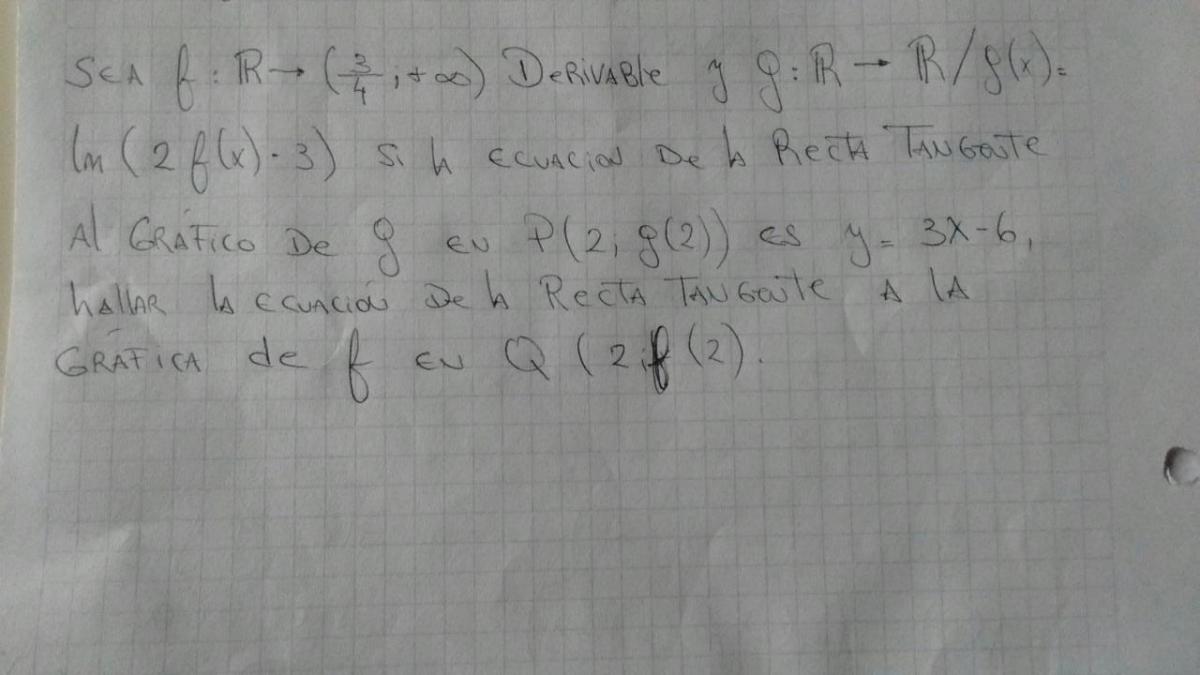 SEA f: ℝ → (3/4; +∞) DERIVABLE y g: ℝ → ℝ / g(x)=
ln (2 f(x) - 3) Si la ECUACION De la RECTA TANGENTE
Al GRÁFICO De g EN P(2; g(2)) es y = 3x-6,
hallar la ECUACIÓN De la RECTA TANGENTE A lA
GRÁFICA de f EN Q (2; f (2).